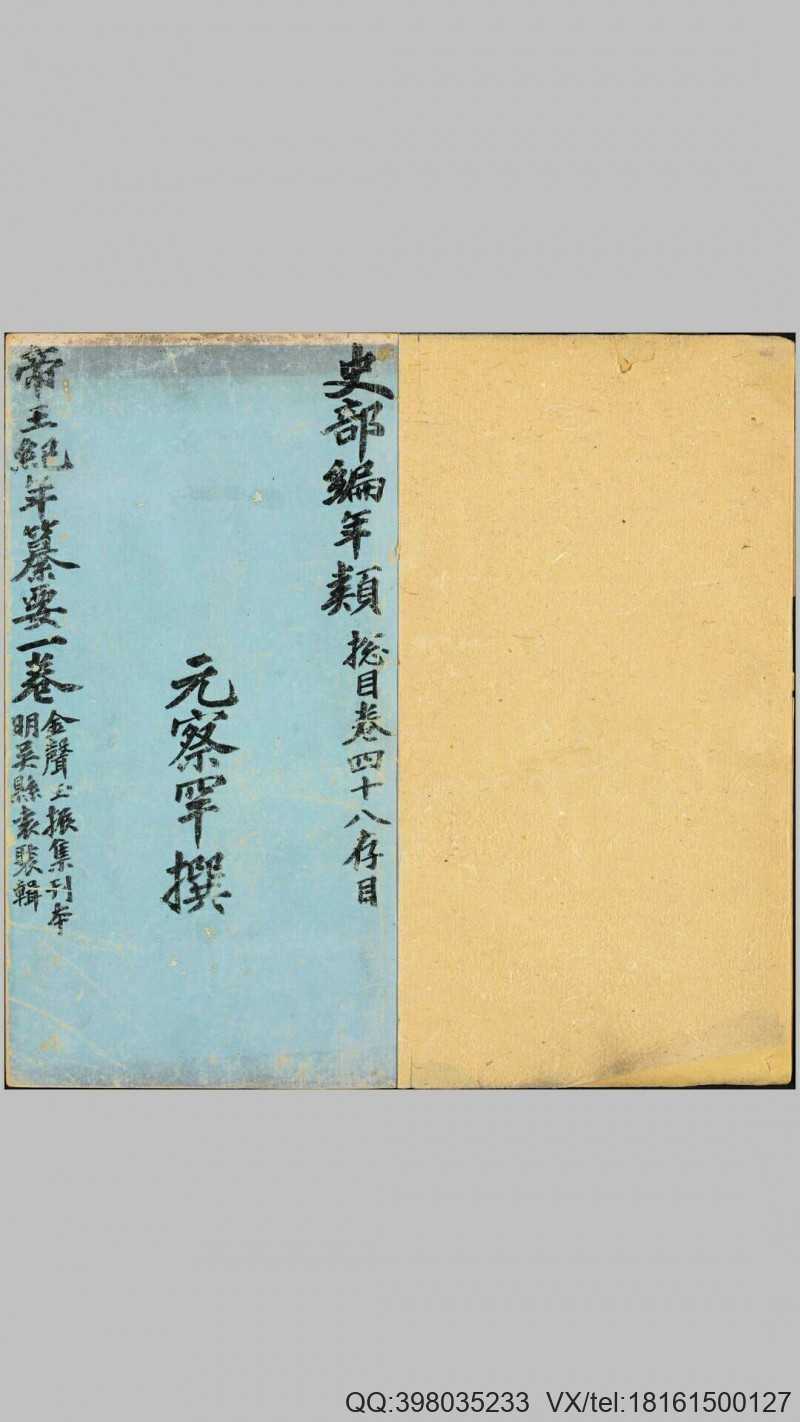 史部編年類 總目卷四十八存目
元察罕撰
帝王紀年纂要一卷
金聲玉振集刊本
明吳縣袁褧輯
QQ:398035233 VX/tel:18161500127